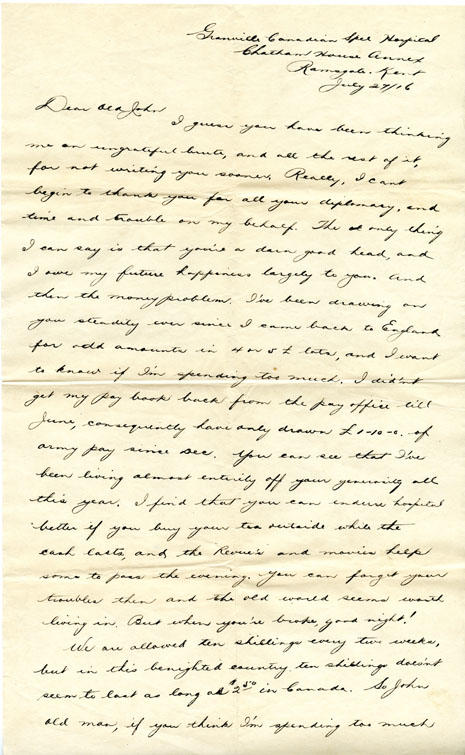 Granville Canadian Spec Hospital
Chatham House Annex
Ramsgate, Kent
July 27/16
Dear Old John
I guess you have been thinking
me an ungrateful brute, and all the rest of it,
for not writing you sooner. Really, I cant
begin to thank you for all your diplomacy, and
time and trouble on my behalf. The only thing
I can say is that you're a darn good head, and
I owe my future happiness largely to you. And
then the money problem. I've been drawing on
you steadily ever since I came back to England
for odd amounts in 4 or 5 £ lots, and I want
to know if I'm spending too much. I did'nt
get my pay book back from the pay office till
June, consequently have only drawn £1-10-0. of
army pay since Dec. You can see that I've
been living almost entirely off your generosity all
this year. I find that you can endure hospital
better if you buy your tea outside while the
cash lasts, and the Revue's and movies help
some to pass the evening. You can forget your
troubles then and the old world seems worth
living in. But when you're broke, good night!
We are allowed ten shillings every two weeks,
but in this benighted country ten shillings does'nt
seem to last as long as $2.50 in Canada. So John
old man, if you think I'm spending too much